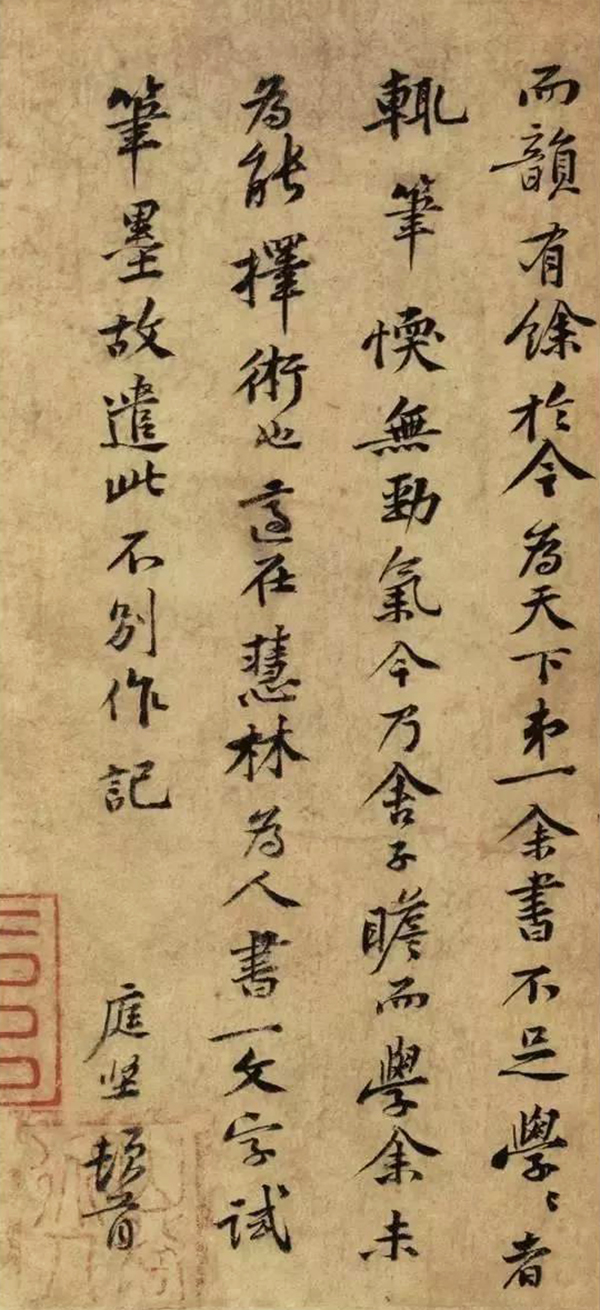 而韻有餘於今為天下第一余書不足學〻者
輒筆愞無勁氣今乃舍子瞻而學余未
為能擇術也適在慧林為人書一文字試
筆墨故遣此不別作記
庭堅頓首